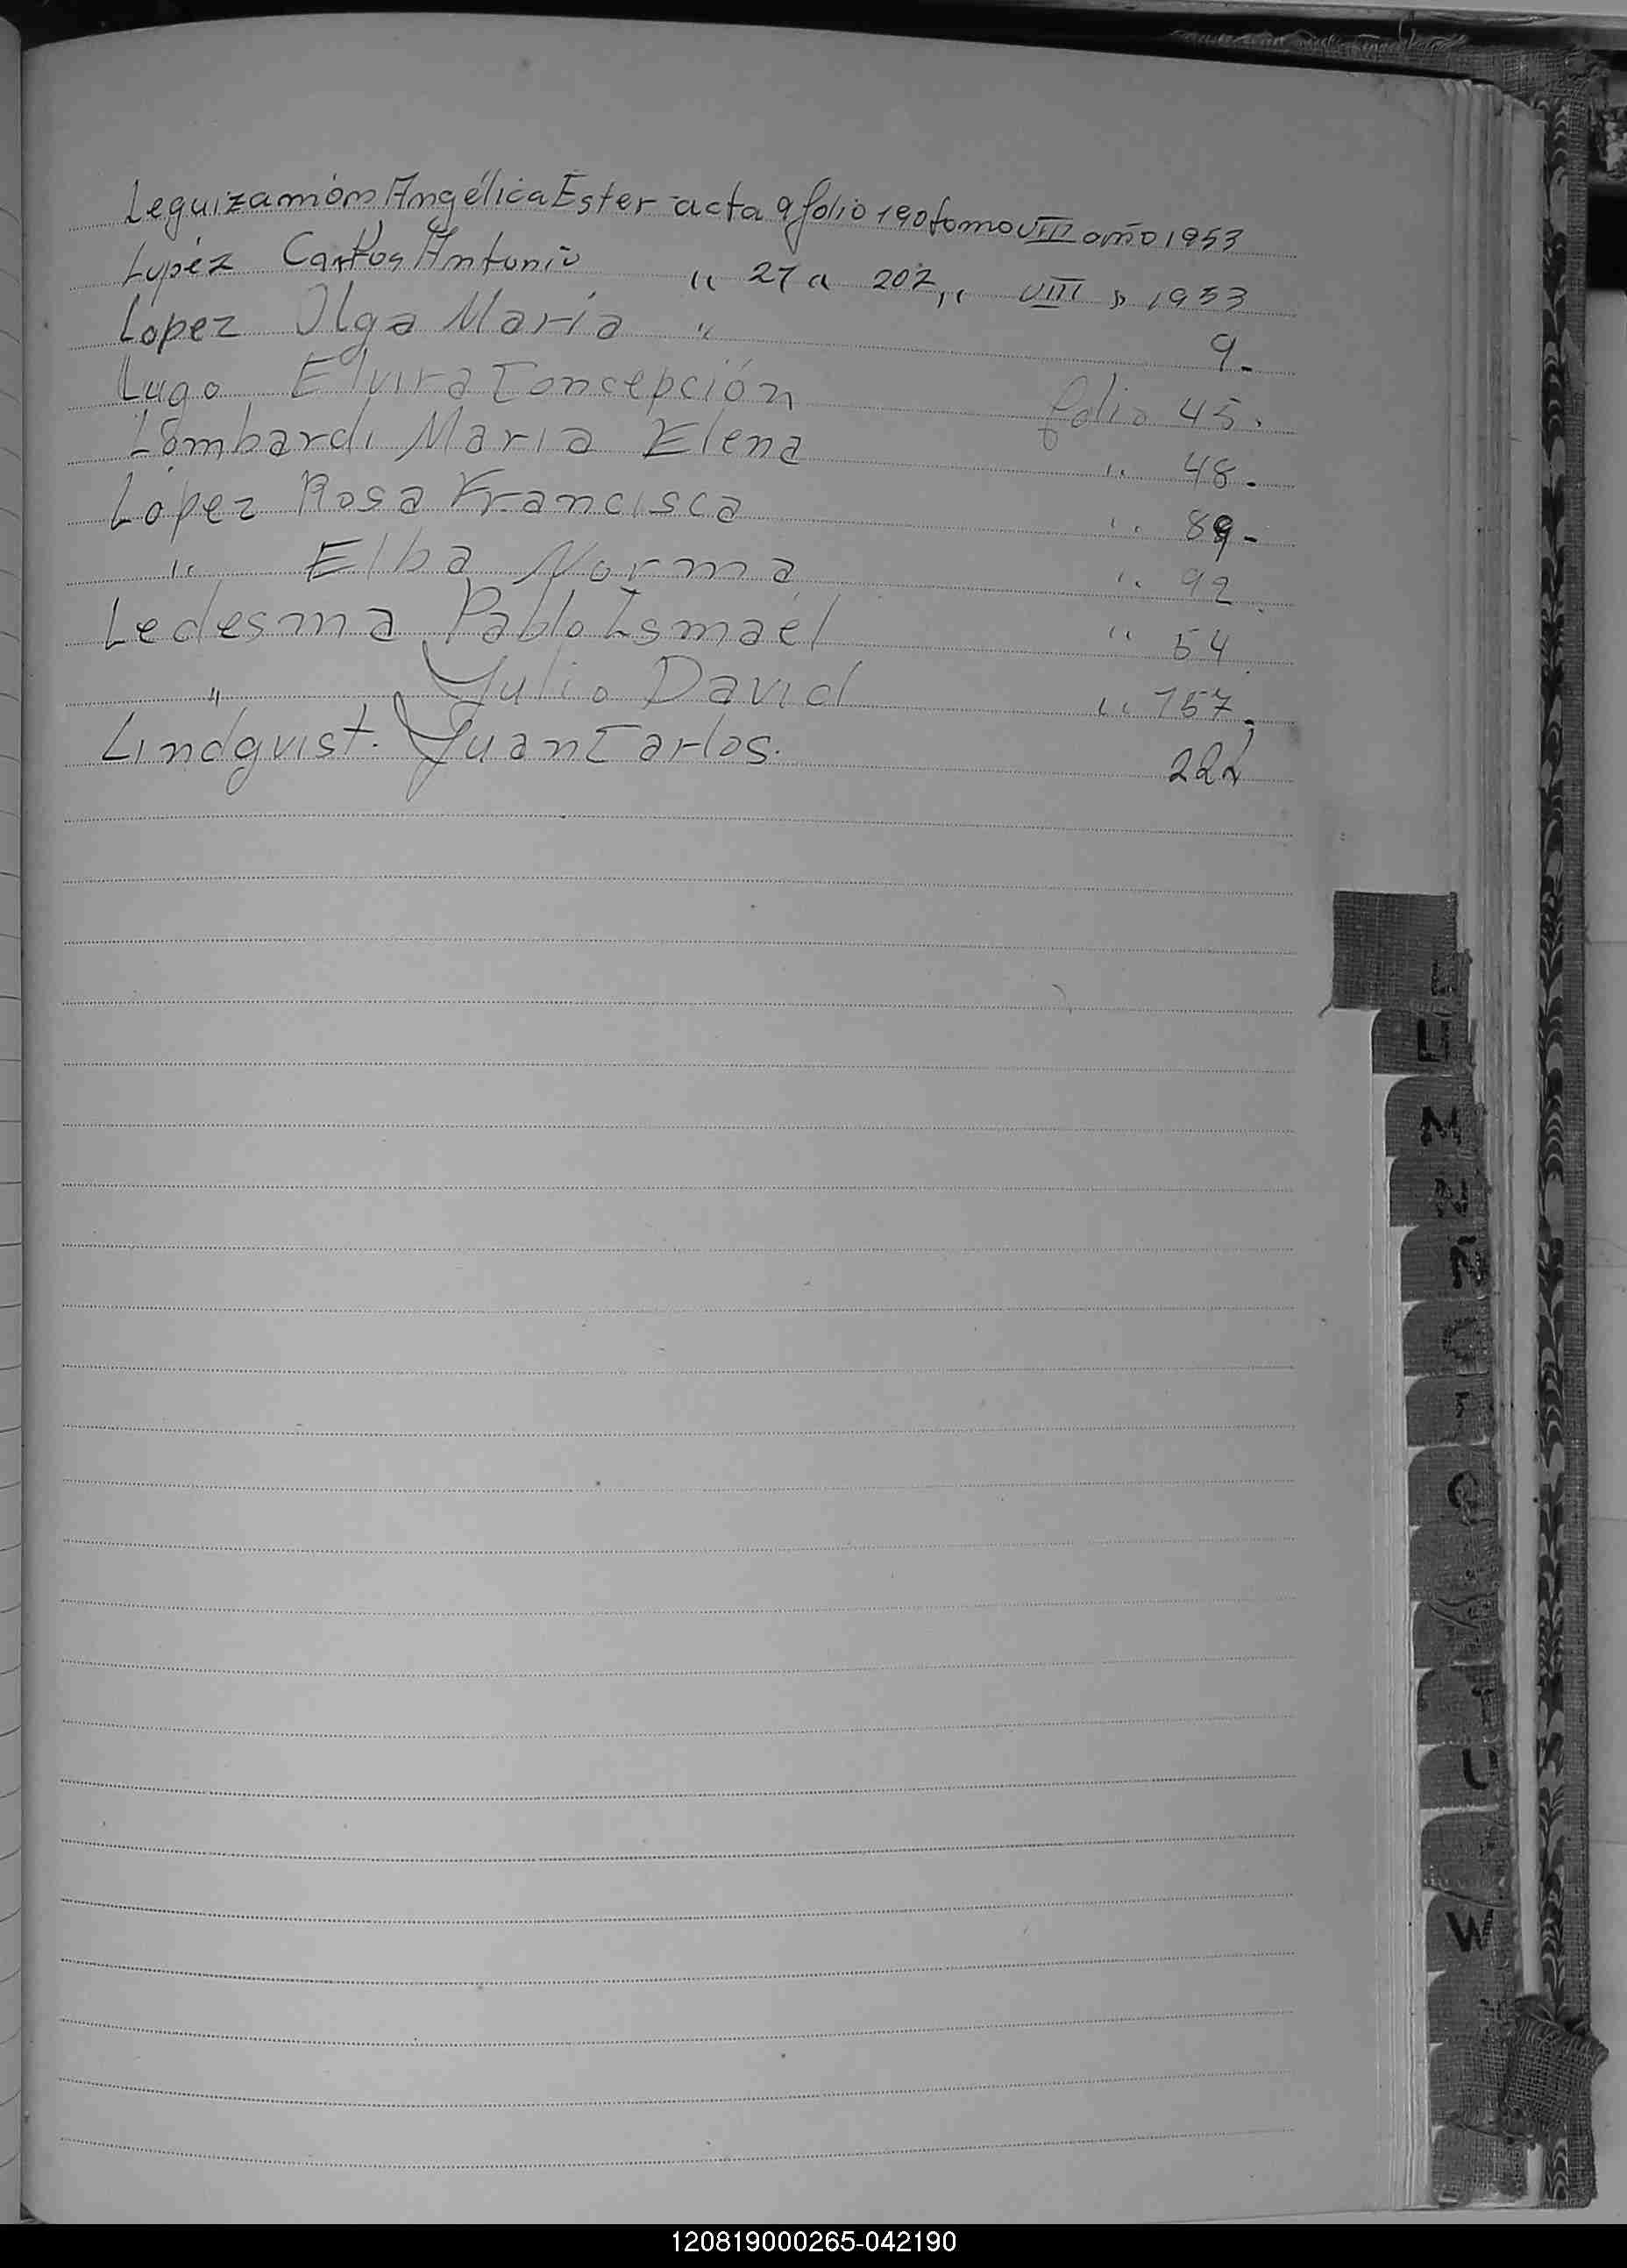 Leguizamón Angélica Ester acta 9 folio 190 tomo VIII año 1953
Lopéz Carlos Antonio " 27 a 202 " VIII " 1953
Lopez Olga María " 9-
Lugo Elvira Concepción folio 45.
Lombardi María Elena " 48-
López Rosa Francisca " 89-
" Elba Norma " 92
Ledesma Pablo Ismaél " 54
" Julio David " 157-
Lindqvist. Juan Carlos. 222
L
M
N
Ñ
O
Q
T
U
W
120819000265-042190